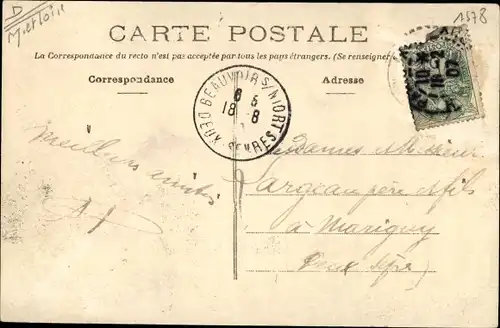 D
Merloir
1578
CARTE POSTALE
La Correspondance du recto n'est pas acceptée par tous les pays étrangers. (Se renseigner
Correspondance
Adresse
BEAUVOIR S/NIORT
DEUX SEVRES
8 5
18 - 8
Meilleurs amitiés
Mesdames Monsieur
Largeau père & fils
à Marigny
Deux Sèvres